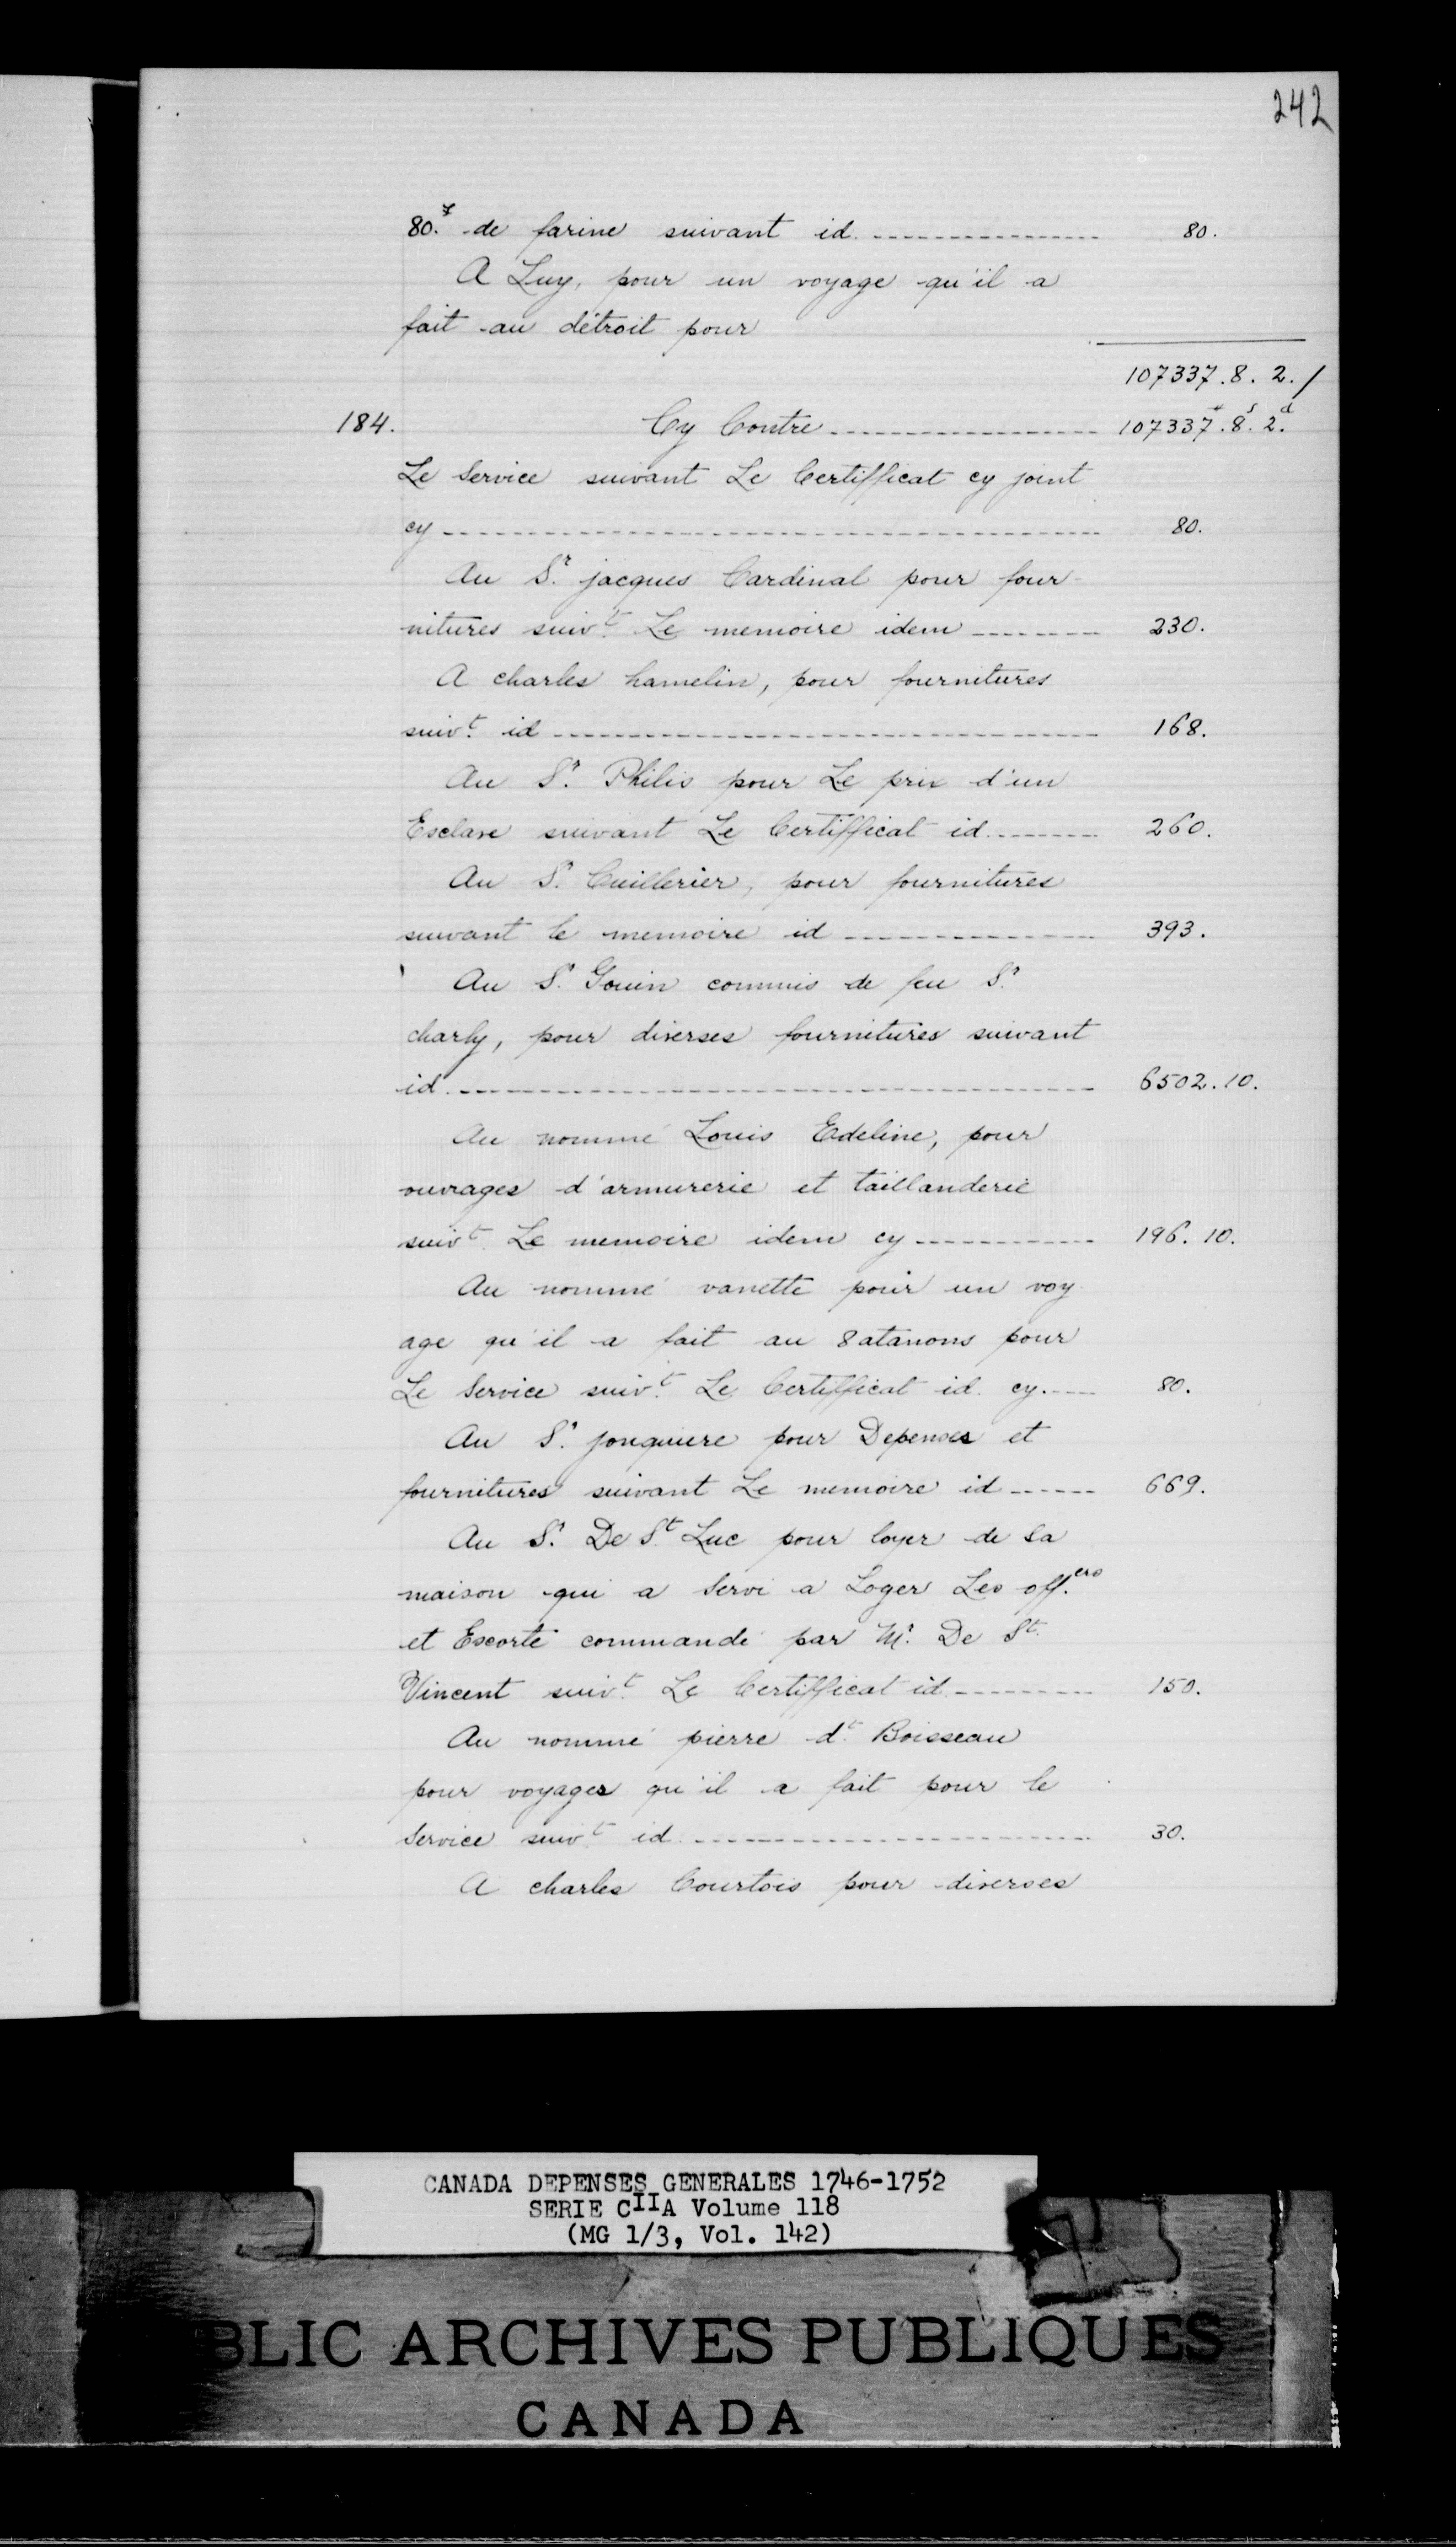 242
80.# de farine suivant id. ---------------- 80.
A Luy, pour un voyage qu'il a
fait au détroit pour
107337.8.2./
184. Cy Contre ------------------- 107337#.8s.2d.
Le Service suivant Le Certifficat cy joint
cy ---------------------------------------- 80.
Au Sr. jacques Cardinal pour four-
nitures suivt. Le memoire idem --------- 230.
A charles hamelin, pour fournitures
suivt. id --------------------------------- 168.
Au Sr. Philis pour Le prix d'un
Esclave suivant Le Certifficat id. -------- 260.
Au Sr. Cuillerier, pour fournitures
suivant le memoire id ---------------- 393.
Au Sr. Gouin commis de feu Sr.
charly, pour diverses fournitures suivant
id. -------------------------------------- 6502.10.
Au nommé Louis Edeline, pour
ouvrages d'armurerie et taillanderie
suivt. Le memoire idem cy ----------- 196.10.
Au nommé vanette pour un voy
age qu'il a fait au 8atanons pour
Le Service suivt. Le Certifficat id. cy. ---- 80.
Au Sr. jonquiere pour Depenses et
fournitures suivant Le memoire id ------ 669.
Au Sr. De St. Luc pour loyer de sa
maison qui a Servi a Loger Les off.ers
et Escorte commandé par Mr. De St.
Vincent suivt. Le Certifficat id. --------- 150.
Au nommé pierre dt. Boisseau
pour voyages qu'il a fait pour le
Service suivt. id. ------------------------ 30.
A charles Courtois pour diverses
CANADA DEPENSES GENERALES 1746-1752
SERIE CIIA Volume 118
(MG 1/3, Vol. 142)
BLIC ARCHIVES PUBLIQUES
CANADA